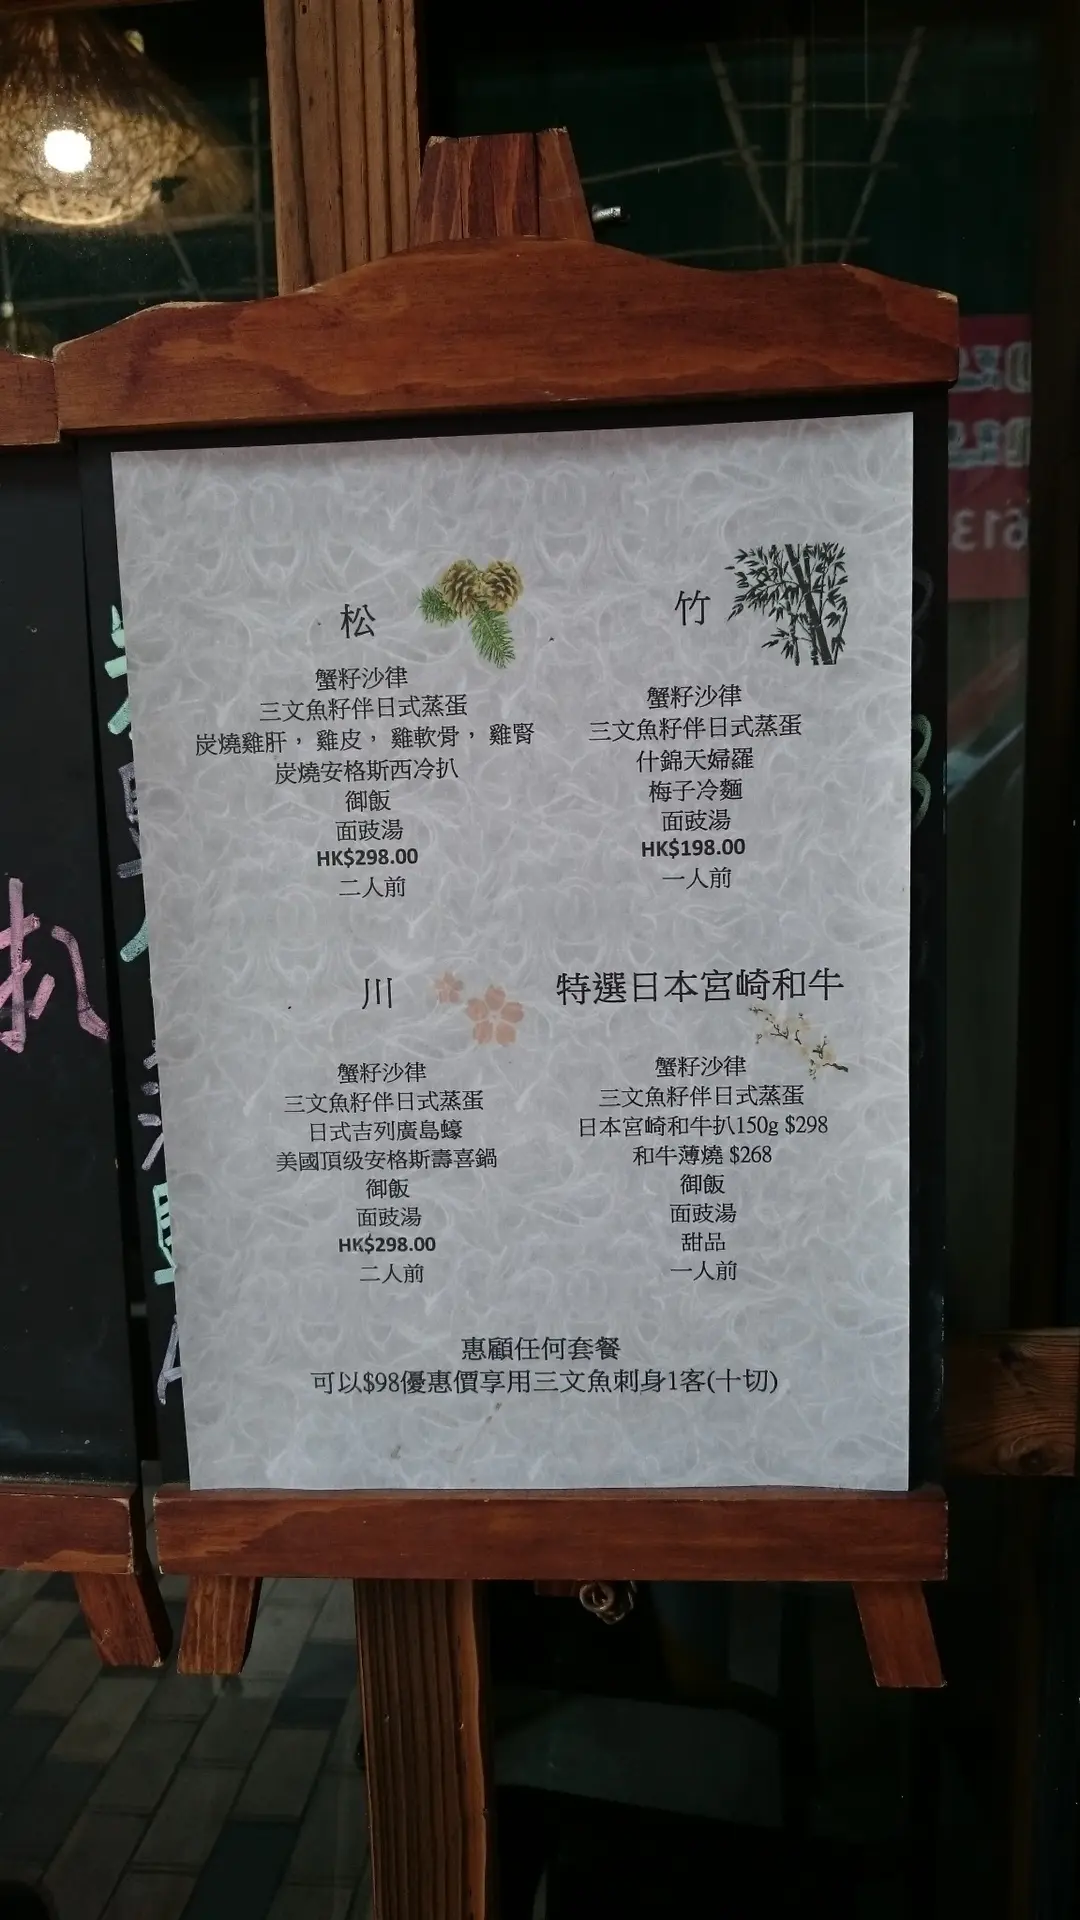 松
蟹籽沙律
三文魚籽伴日式蒸蛋
炭燒雞肝，雞皮，雞軟骨，雞腎
炭燒安格斯西冷扒
御飯
面豉湯
HK$298.00
二人前
竹
蟹籽沙律
三文魚籽伴日式蒸蛋
什錦天婦羅
梅子冷麵
面豉湯
HK$198.00
一人前
川
蟹籽沙律
三文魚籽伴日式蒸蛋
日式吉列廣島蠔
美國頂级安格斯壽喜鍋
御飯
面豉湯
HK$298.00
二人前
特選日本宮崎和牛
蟹籽沙律
三文魚籽伴日式蒸蛋
日本宮崎和牛扒150g $298
和牛薄燒 $268
御飯
面豉湯
甜品
一人前
惠顧任何套餐
可以$98優惠價享用三文魚刺身1客(十切)
扒